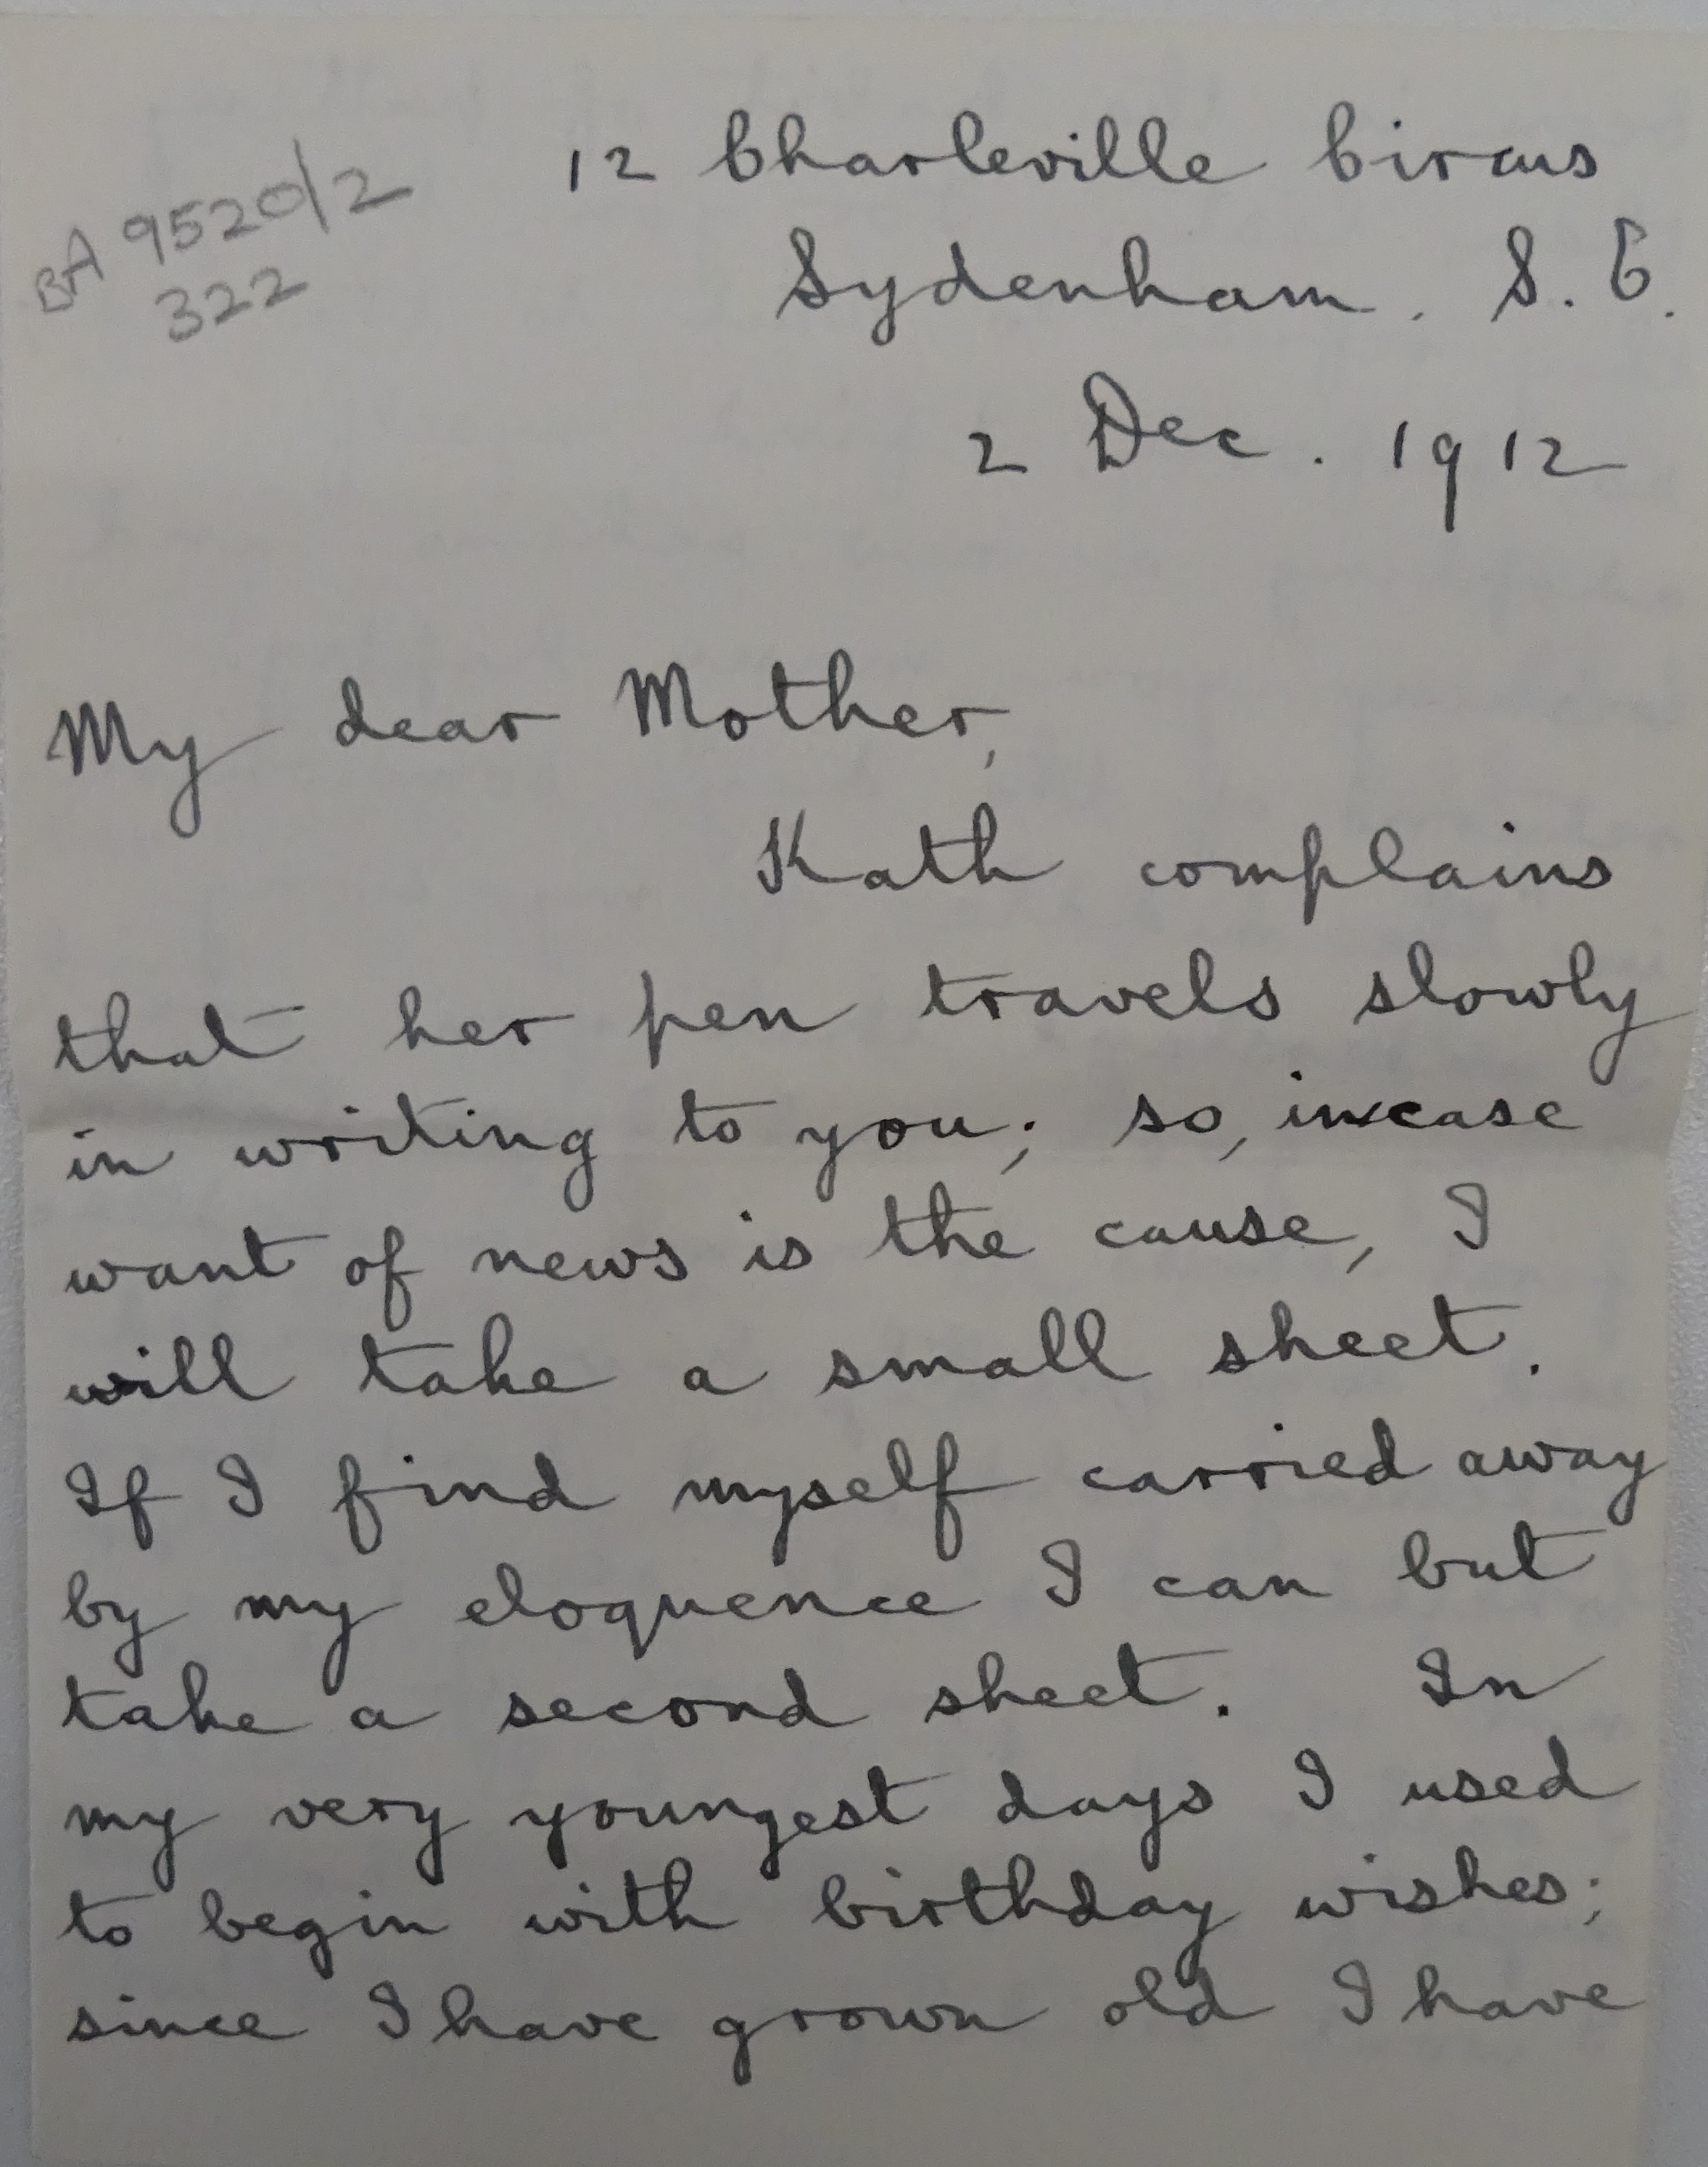 12 Charleville Circus
BA 9520/2
322
Sydenham. S. E.
2 Dec. 1912
My dear Mother,
Kath complains
that her pen travels slowly
in writing to you; so, incase
want of news is the cause, I
will take a small sheet.
If I find myself carried away
by my eloquence I can but
take a second sheet. In
my very youngest days I used
to begin with birthday wishes;
since I have grown old I have